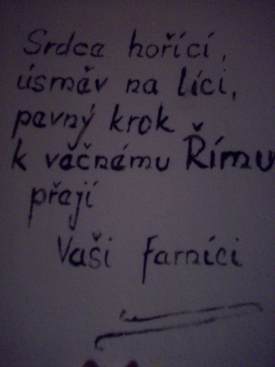 Srdce hořící,
úsměv na líci,
pevný krok
k věčnému Římu
přejí
Vaši farníci